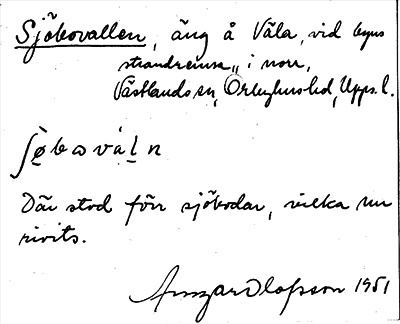 Sjöbovallen, äng å Väla, vid byns
strandremsa i norr,
Västlands sn, Örbyhus hd, Upps. l.
ʃø̱bωváḻn
Där stod förr sjöbodar, vilka nu
rivits.
Ansgar Olofsson 1951